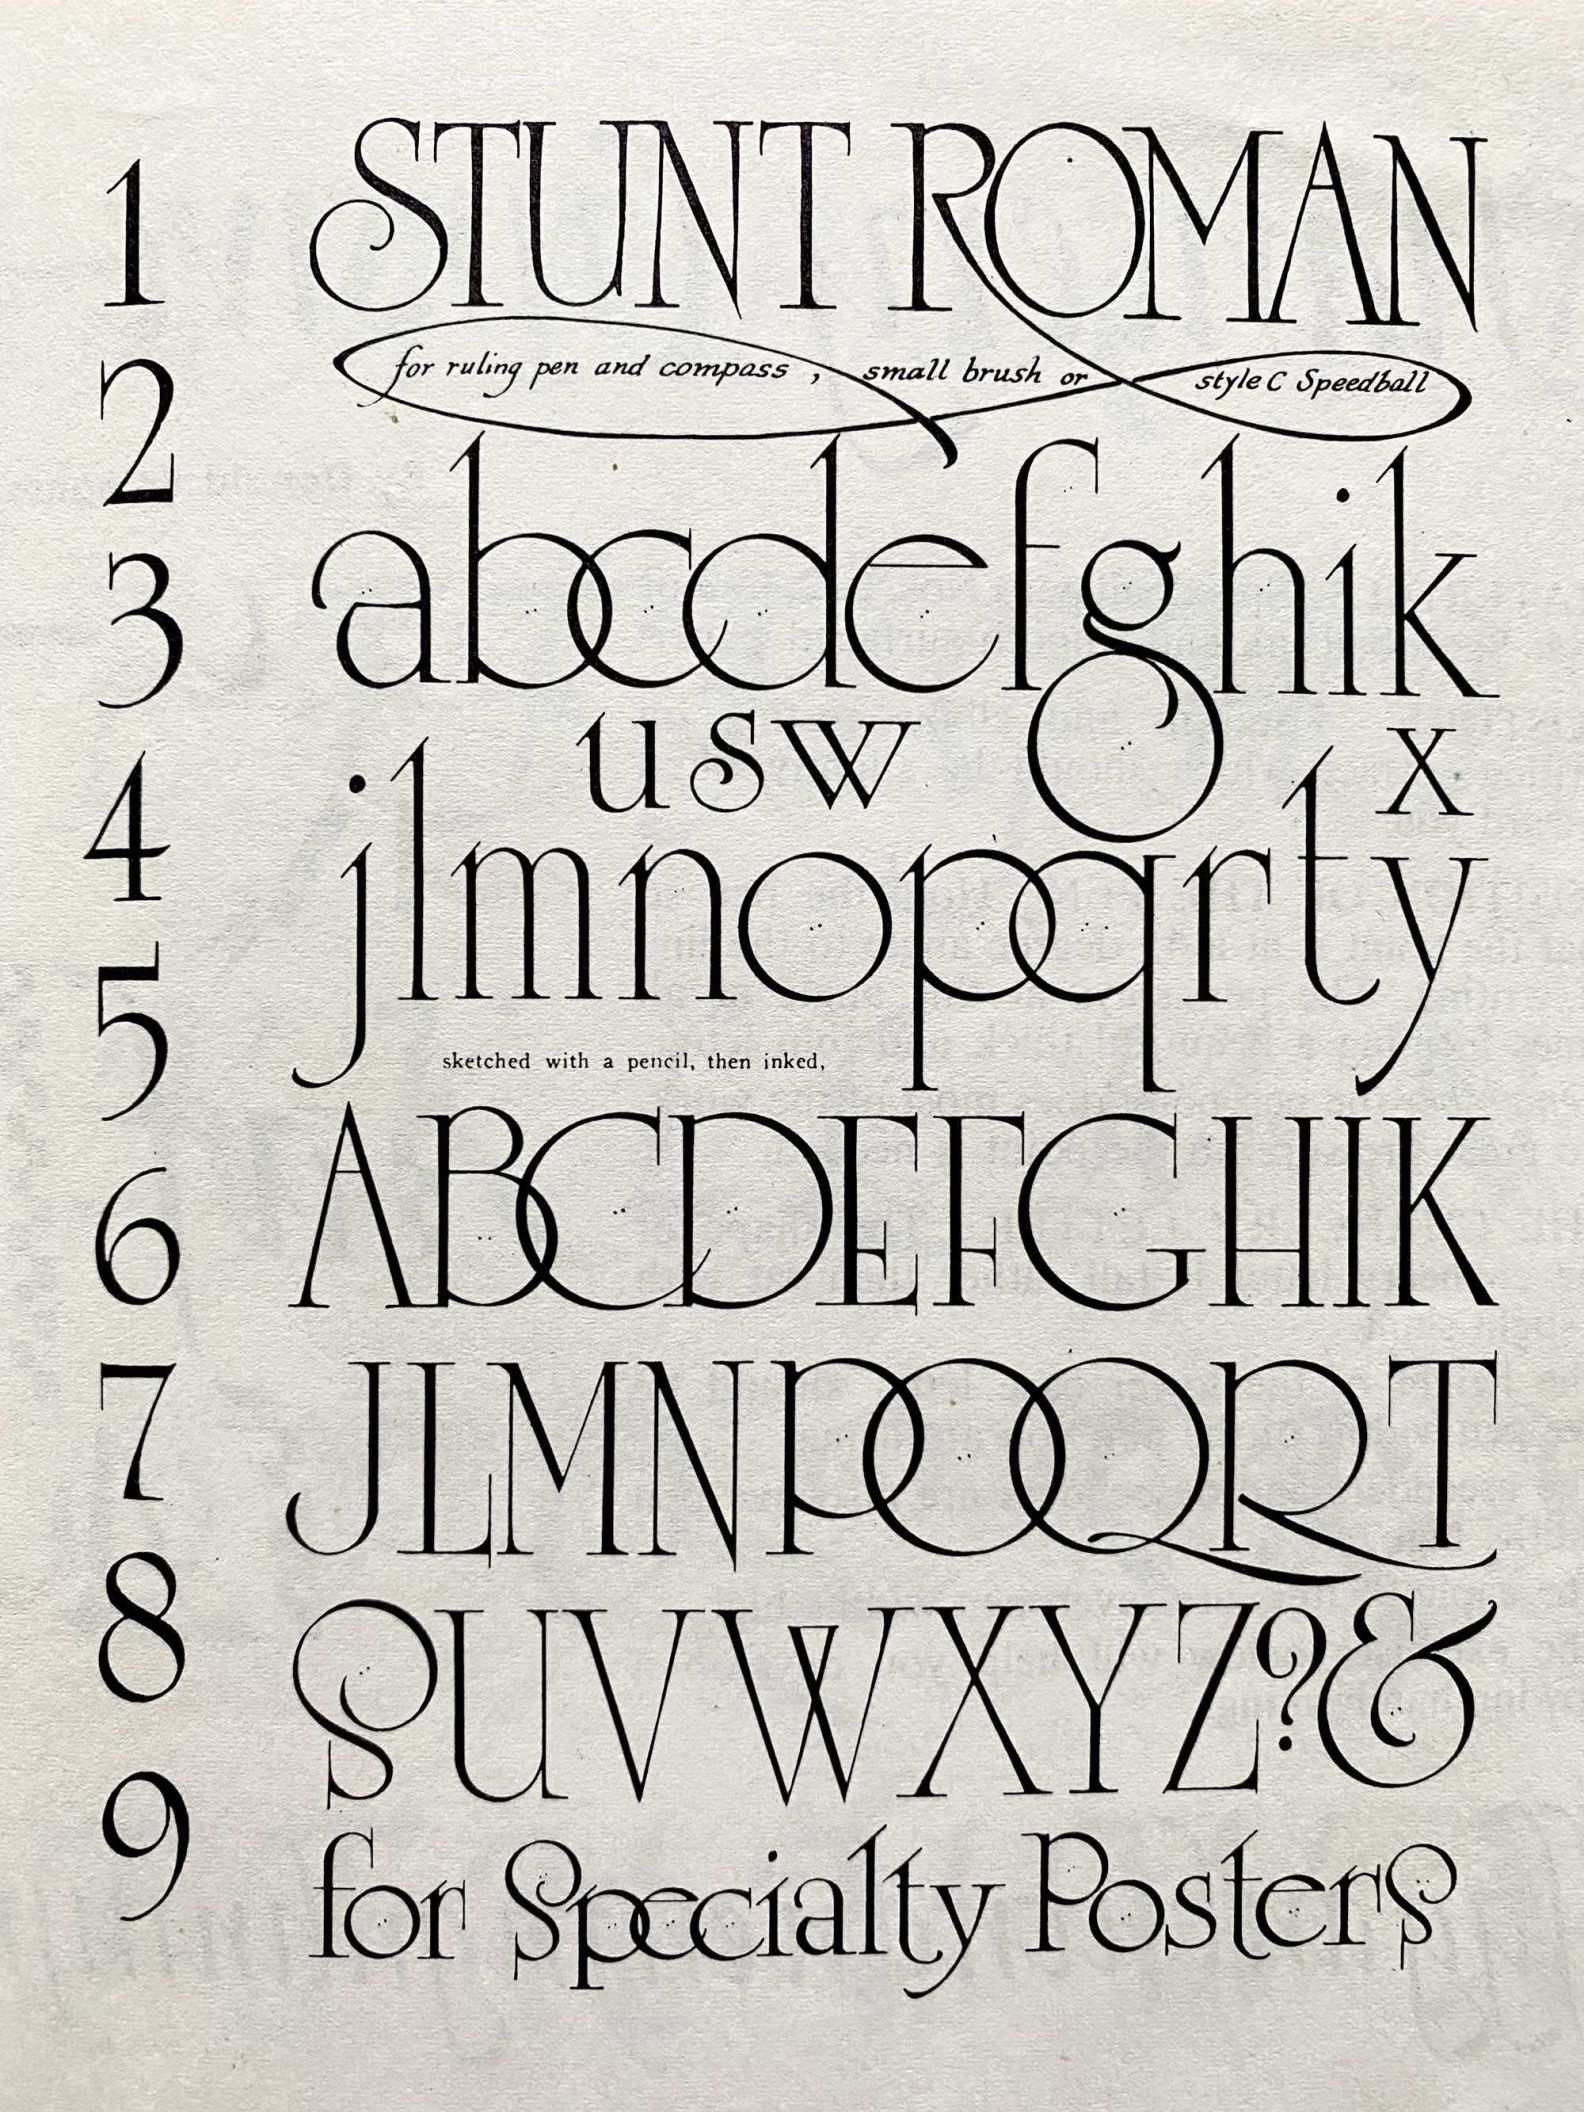 STUNT ROMAN
for ruling pen and compass, small brush or style C Speedball
abcdefghik
usw x
jlmnopqrty
sketched with a pencil, then inked,
ABCDEFGHIK
JLMNPOQRT
SUVWXYZ?&
for Specialty Posters
1
2
3
4
5
6
7
8
9